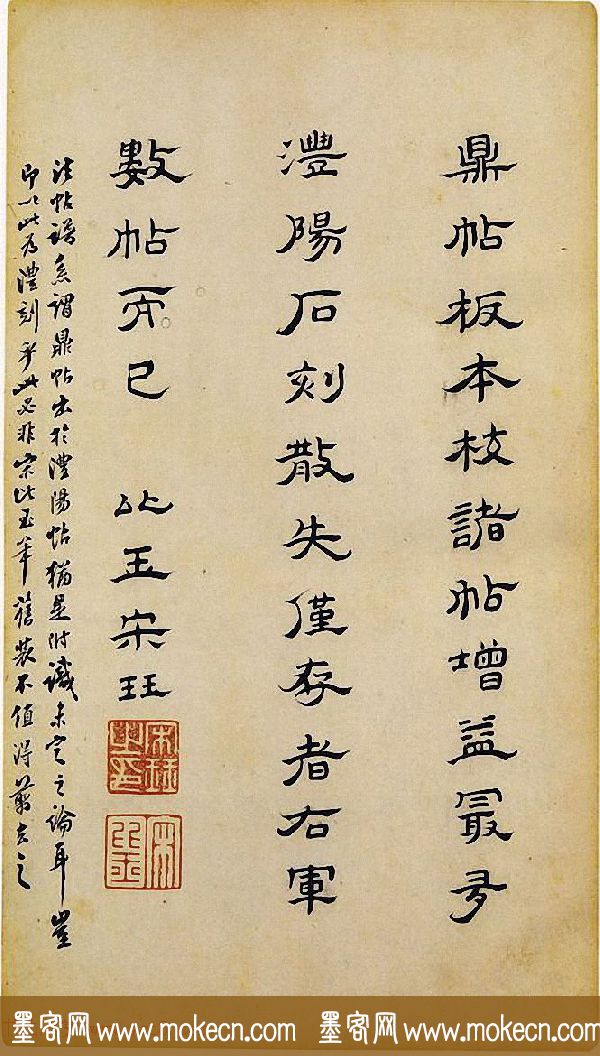 鼎帖板本校諸帖增益最多
澧陽石刻散失僅存者右軍
數帖而已 比玉宋珏
法帖譜系謂鼎帖出於澧陽帖猶是附識未定之論耳豈
即以此為澧刻乎此必非宋比玉筆舊裝不值得剪去之
墨客网 www.mokecn.com 墨客网 www.mokecn.com